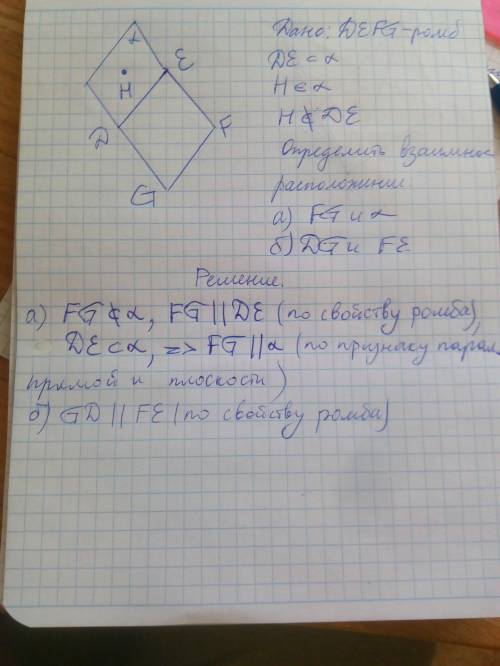 α
E
H
D
F
G
Дано: DEFG - ромб
DE ⊂ α
H ∈ α
H ∉ DE
Определить взаимное
расположение:
а) FG и α
б) DG и FE
Решение.
а) FG ⊄ α, FG || DE (по свойству ромба),
DE ⊂ α, => FG || α (по признаку парал.
прямой и плоскости)
б) GD || FE (по свойству ромба)